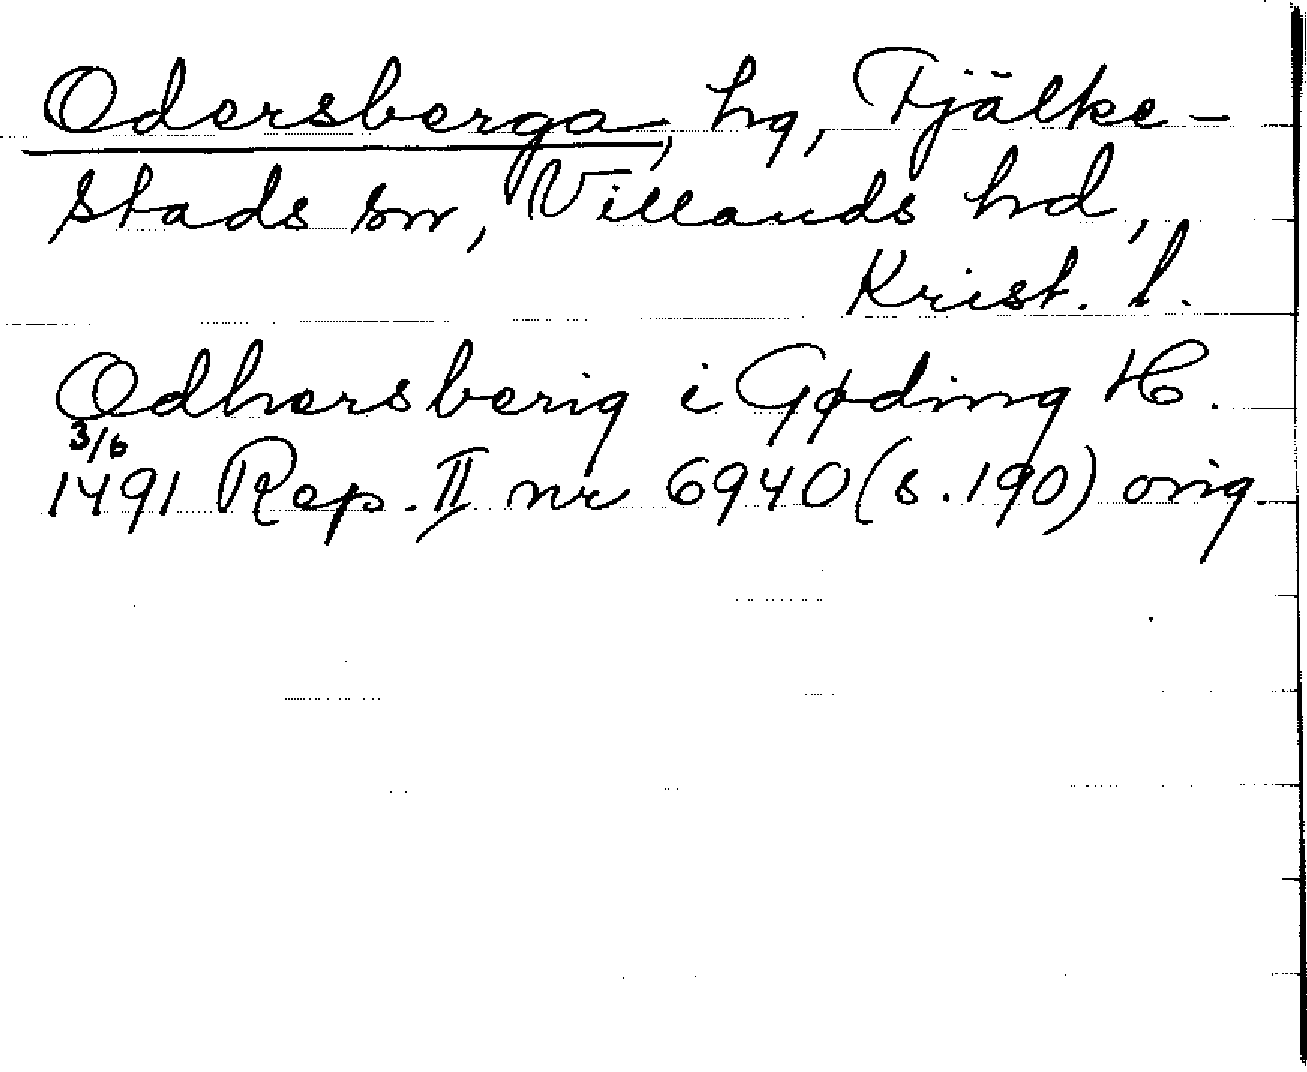 Odersberga, hg, Fjälke-
stads sn, Villands hd,
Krist. l.
Odhersberig i Gøding H.
3/6
1491 Rep. II nr 6940 (s. 190) orig.